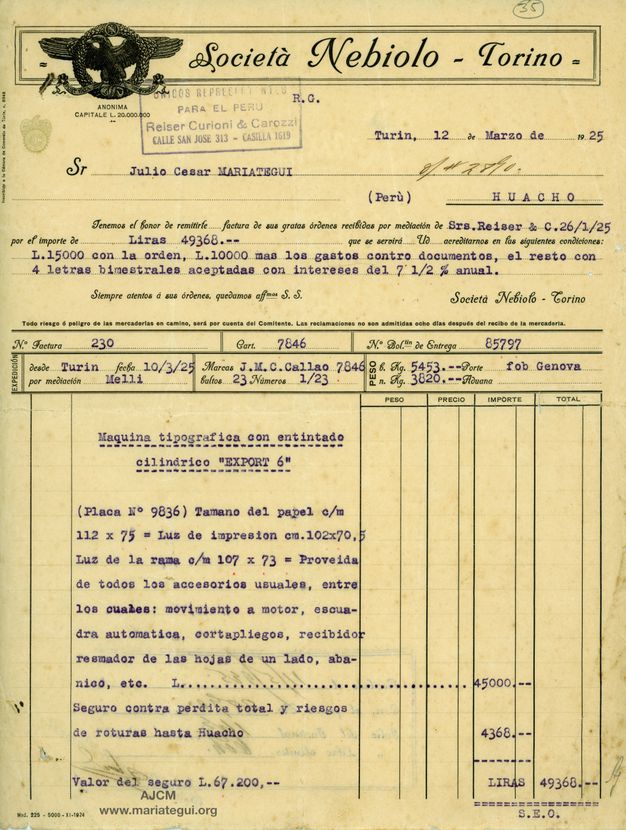 35
Società Nebiolo - Torino
ANONIMA
CAPITALE L. 20.000.000
R.G.
PARA EL PERU
Reiser Curioni & Carozzi
CALLE SAN JOSE 313 - CASILLA 1619
Turin, 12 de Marzo de 1925
Sr Julio Cesar MARIATEGUI
(Perù) HUACHO
Tenemos el honor de remitirle factura de sus gratas órdenes recibidas por mediación de Srs.Reiser & C.26/1/25
por el importe de Liras 49368.-- que se servirá Ud acreditarnos en las siguientes condiciones:
L.15000 con la orden, L.10000 mas los gastos contro documentos, el resto con
4 letras bimestrales aceptadas con intereses del 7 1/2 % anual.
Siempre atentos á sus órdenes, quedamos aff.mos S. S. Società Nebiolo - Torino
Todo riesgo ó peligro de las mercaderías en camino, será por cuenta del Comitente. Las reclamaciones no son admitidas ocho días después del recibo de la mercadería.
N.º Factura 230 Cart. 7846 N.º Bol.tin de Entrega 85797
EXPEDICIÓN desde Turin fecha 10/3/25 Marcas J.M.C.Callao 7846 PESO b. Kg. 5453.-- Porte fob Genova
por mediación Melli bultos 23 Números 1/23 n. Kg. 3820.-- Aduana
PESO PRECIO IMPORTE TOTAL
Maquina tipografica con entintado
cilindrico "EXPORT 6"
(Placa Nº 9836) Tamano del papel c/m
112 x 75 = Luz de impresion cm.102x70,5
Luz de la rama c/m 107 x 73 = Proveida
de todos los accesorios usuales, entre
los cuales: movimiento a motor, escua-
dra automatica, cortapliegos, recibidor
resmador de las hojas de un lado, aba-
nico, etc. L. 45000.--
Seguro contra perdita total y riesgos
de roturas hasta Huacho 4368.--
Valor del seguro L.67.200,-- LIRAS 49368.--
S.E.O.
AJCM
www.mariategui.org
Mod. 225 - 5000 - XI-1924